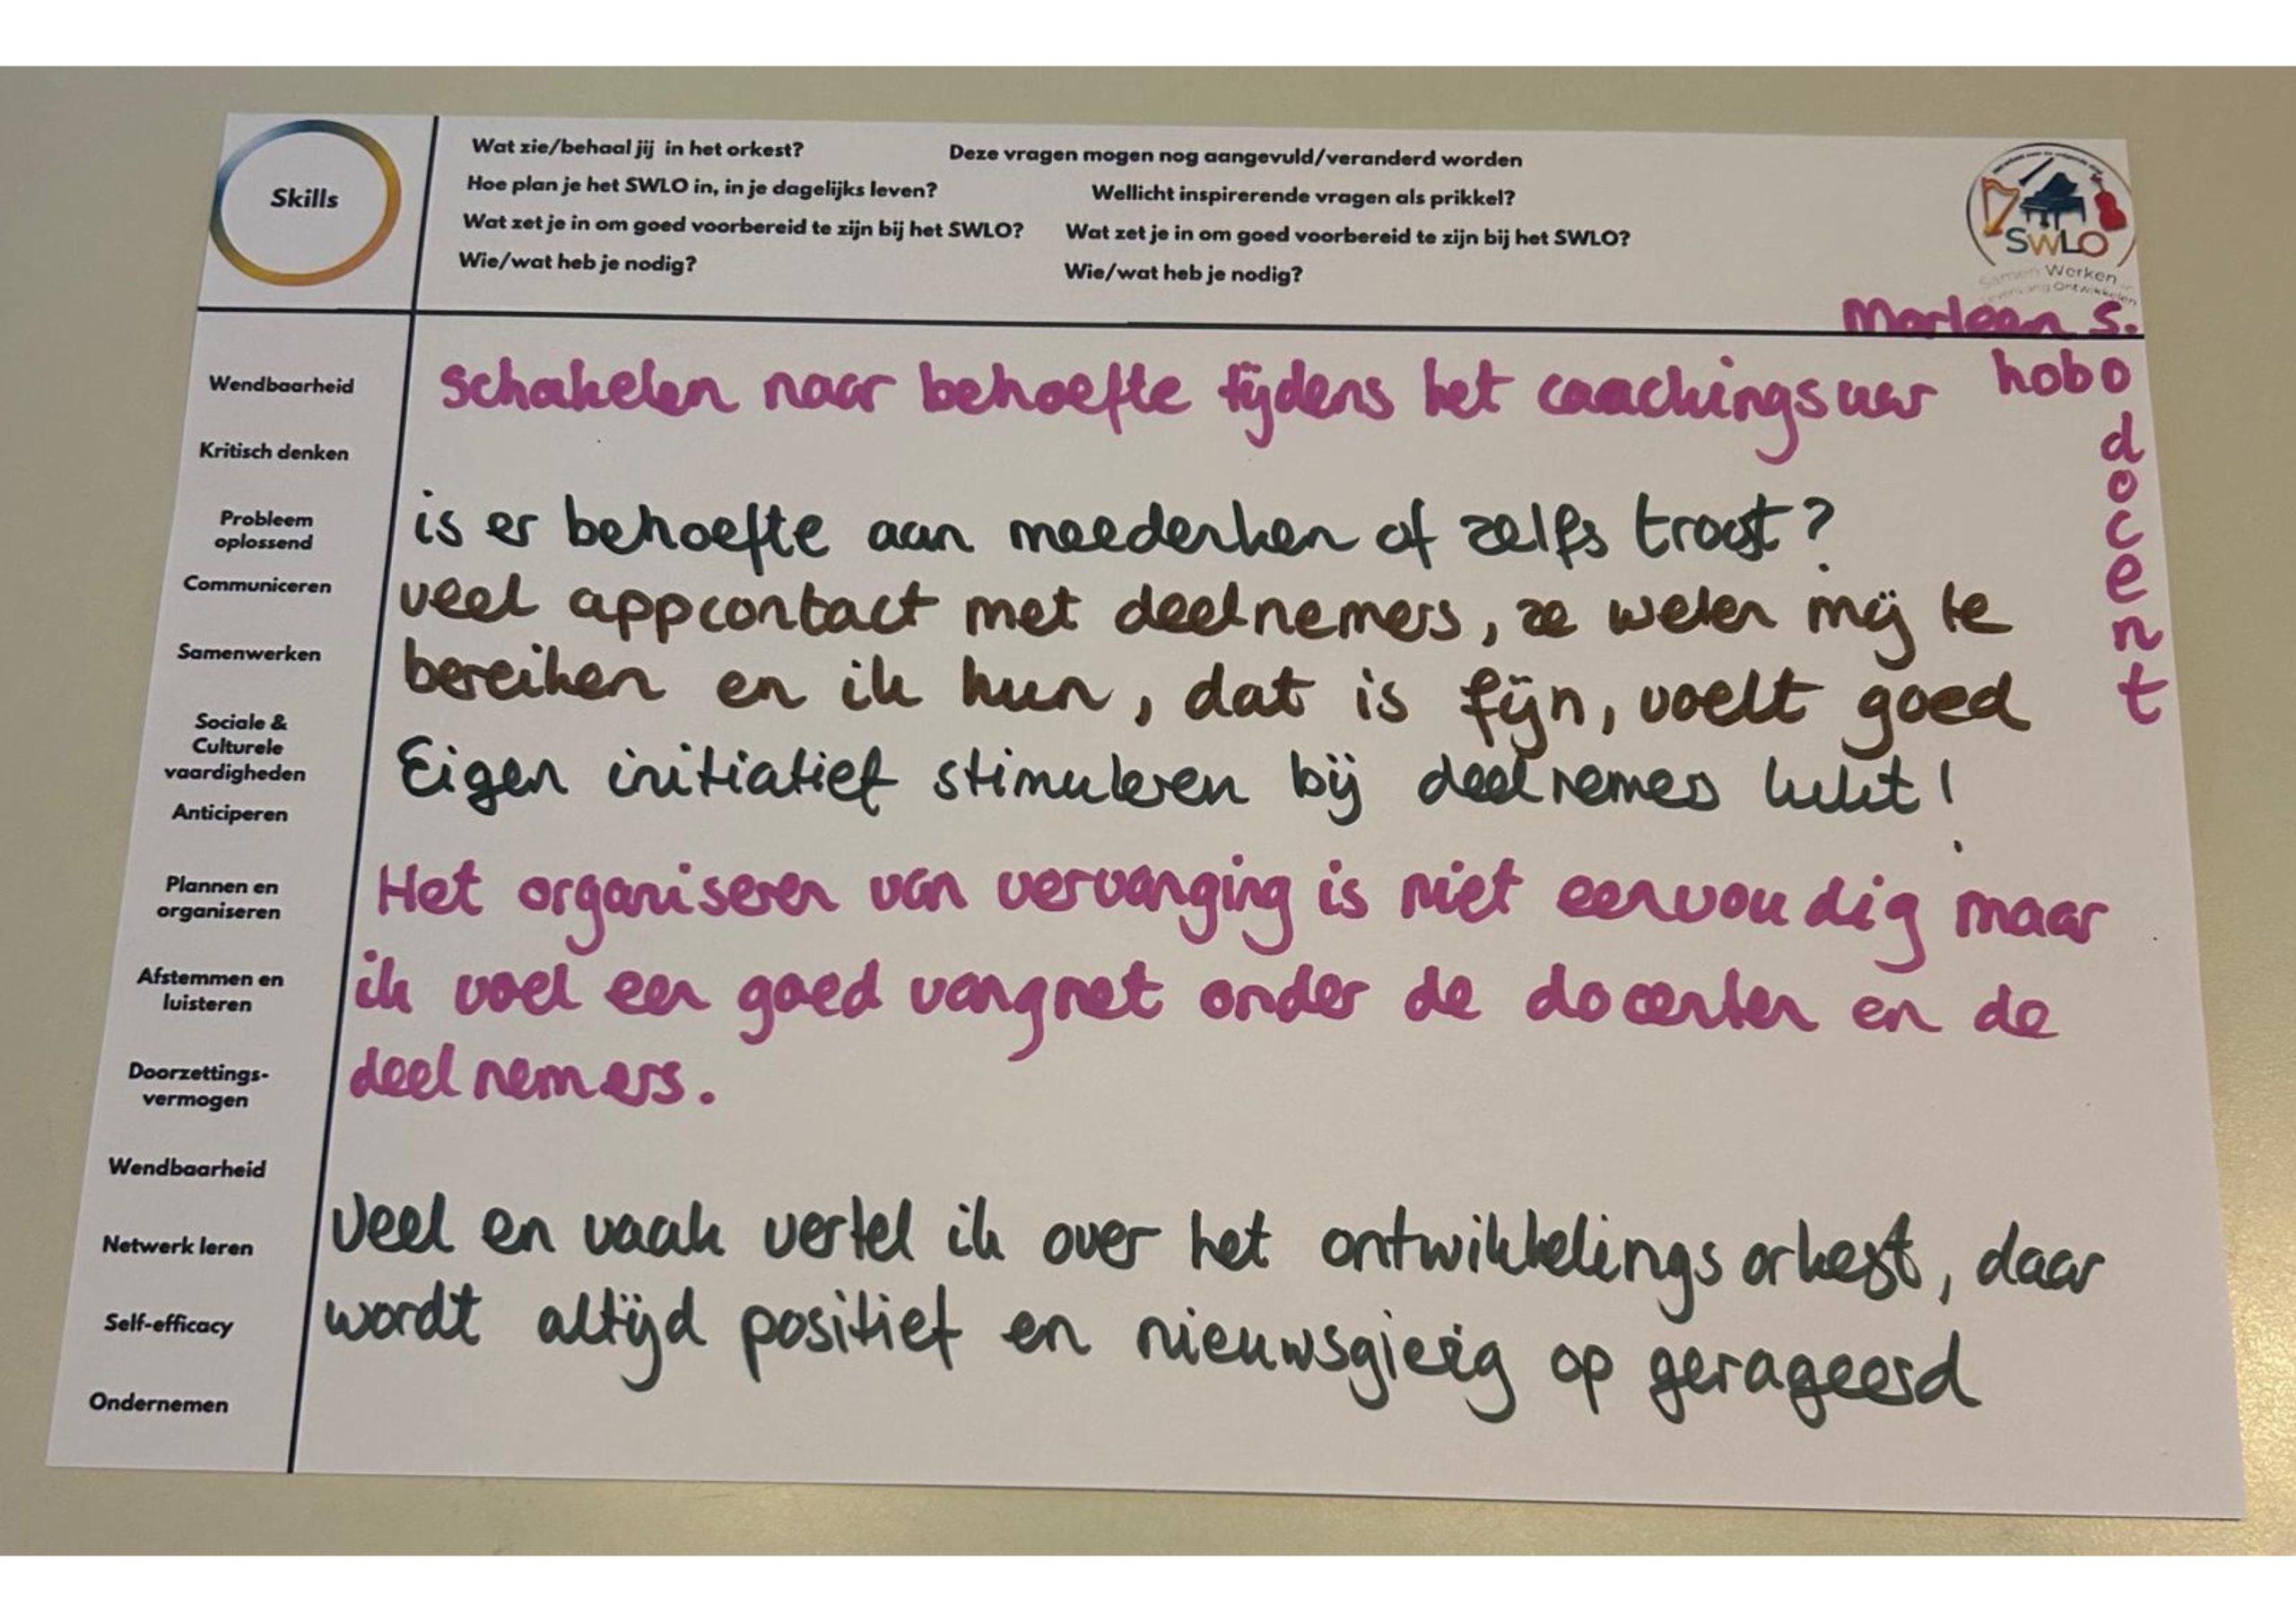 Skills
Wat zie/behaal jij in het orkest?
Hoe plan je het SWLO in, in je dagelijks leven?
Wat zet je in om goed voorbereid te zijn bij het SWLO?
Wie/wat heb je nodig?
Deze vragen mogen nog aangevuld/veranderd worden
Wellicht inspirerende vragen als prikkel?
Wat zet je in om goed voorbereid te zijn bij het SWLO?
Wie/wat heb je nodig?
SWLO
Samen Werken
Ontwikkelen
Marleen S.
hobo
docent
Wendbaarheid
schakelen naar behoefte tijdens het coachingsuur
Kritisch denken
Probleem
oplossend
is er behoefte aan meedenken of zelfs troost?
Communiceren
veel appcontact met deelnemers, ze weten mij te
Samenwerken
bereiken en ik hun, dat is fijn, voelt goed
Sociale &
Culturele
vaardigheden
Eigen initiatief stimuleren bij deelnemers lukt!
Anticiperen
Plannen en
organiseren
Het organiseren van vervanging is niet eenvoudig maar
Afstemmen en
luisteren
ik voel een goed vangnet onder de docenten en de
Doorzettings-
vermogen
deelnemers.
Wendbaarheid
Netwerk leren
Veel en vaak vertel ik over het ontwikkelingsorkest, daar
Self-efficacy
wordt altijd positief en nieuwsgierig op gerageerd
Ondernemen